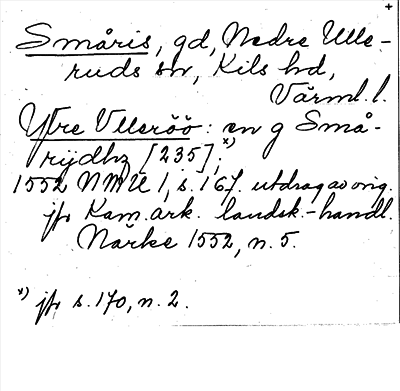 +
Småris, gd, Nedre Ulle-
ruds sn, Kils hd,
Värml. l.
Ytre Vlleröö: en g Små-
rijdhz [235];x)
1552 NMU 1, s. 167. utdrag av orig.
jfr Kam. ark. landsk.-handl.
Närke 1552, n. 5.
x) jfr s. 170, n. 2.